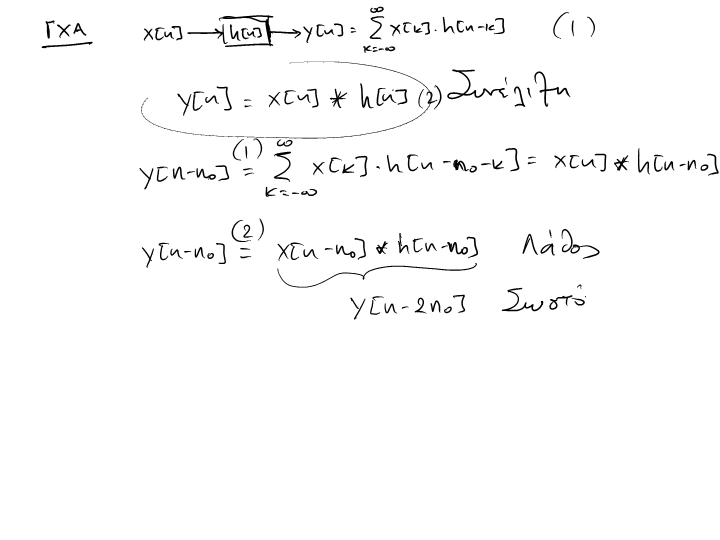 ΓΧΑ x[n] → h[n] → y[n] = ∑_{k=-∞}^{∞} x[k] · h[n-k] (1)
y[n] = x[n] * h[n] (2) Συνέλιξη
y[n-n₀] (1)= ∑_{k=-∞}^{∞} x[k] · h[n-n₀-k] = x[n] * h[n-n₀]
y[n-n₀] (2)= x[n-n₀] * h[n-n₀] Λάθος
y[n-2n₀] Σωστό